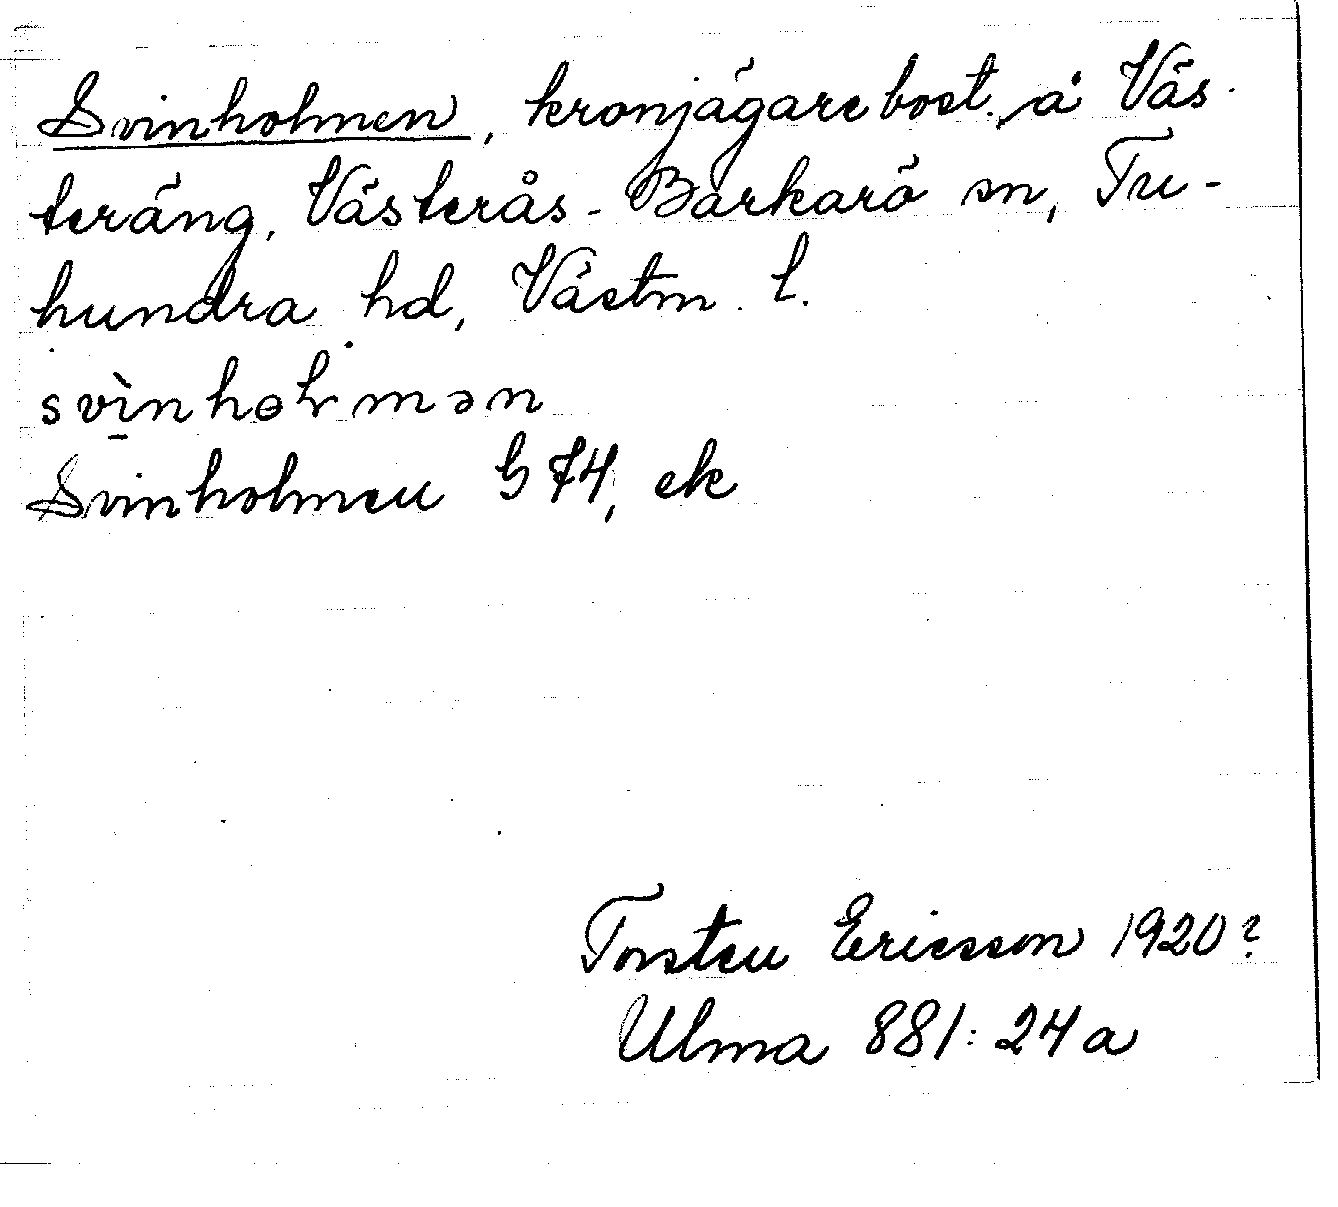 Svinholmen, kronjägarebost. å Väs-
teräng, Västerås-Barkarö sn, Tu-
hundra hd, Västm. l.
svìnhɵɫmən
Svinholmen G 74, ek
Torsten Ericsson 1920?
Ulma 881:24a